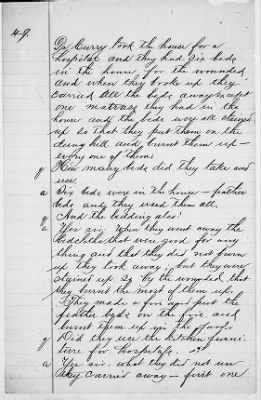 49.
Dr Curry took the house for a
hospital and they had six beds
in the house, for the wounded
and when they broke up they
carried all the beds away except
one matrass they had in the
house and the beds wer all stained
up so that they put them on the
dung hill and burnt them up -
every one of them
q How many beds did they take and
use
a Six beds were in the house - feather
beds and they used them all.
q And the bedding also?
a Yes sir. When they went away the
bedcloths that were good for any
thing and that they did not burn
up they took away, but they were
stained up so by the wounded that
they burnt the most of them up.
They made a fire and put the
feather beds on the fire and
burnt them up in the
q Did they use the kitchen furni-
ture for hospital
a Yes sir. what they did not use
they carried away - first one